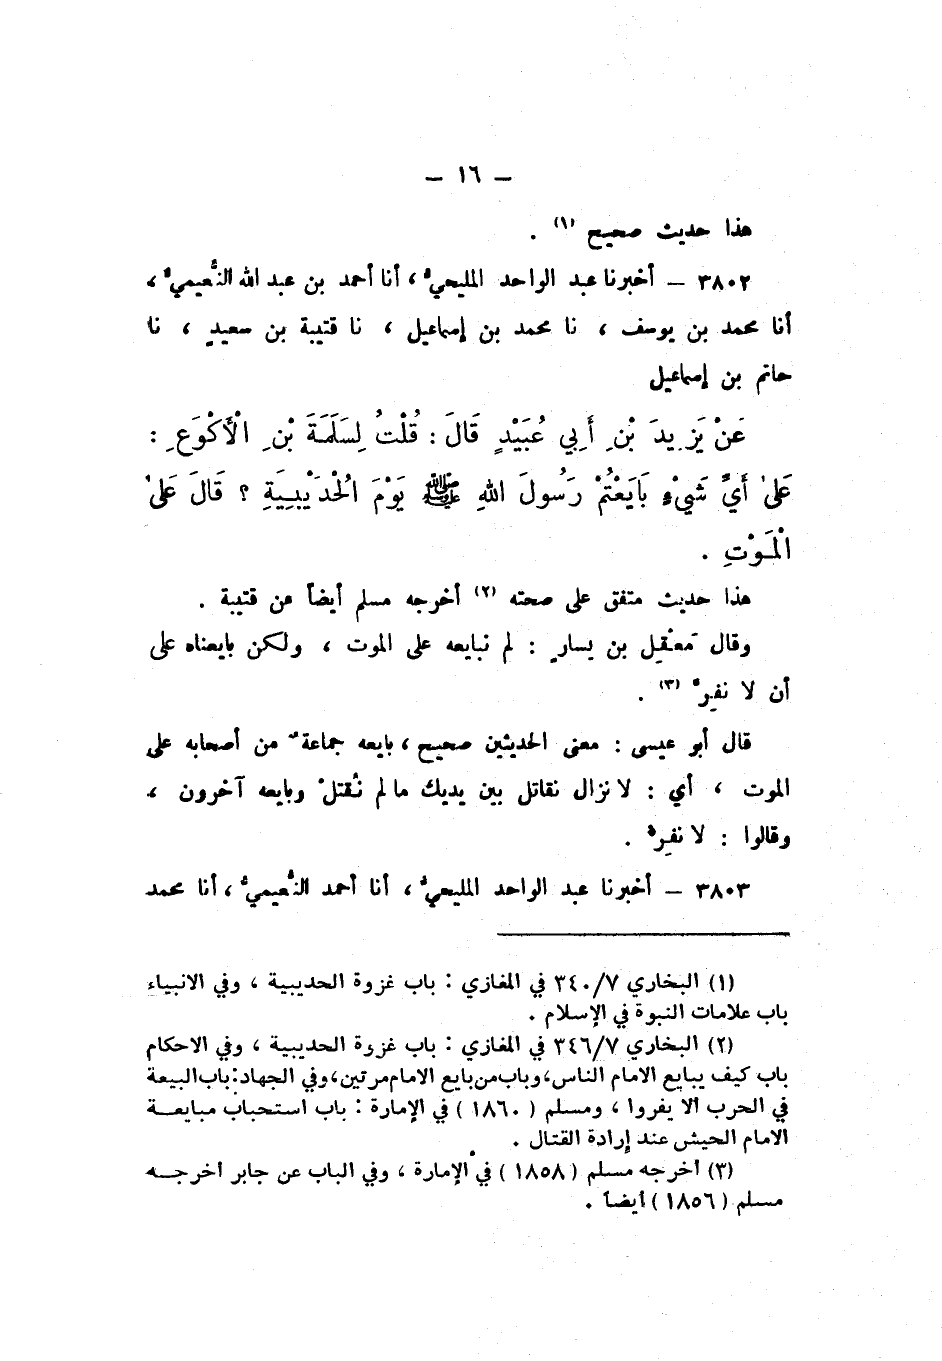 — ١٦ —
هذا حديث صحيح (١) .
٣٨٠٢ — أخبرنا عبد الواحد المليحيُّ ، أنا أحمد بن عبد الله النُّعيميُّ ،
أنا محمد بن يوسف ، نا محمد بن إسماعيل ، نا قتيبة بن سعيدٍ ، نا
حاتم بن إسماعيل
عَنْ يَزِيدَ بْنِ أَبِي عُبَيْدٍ قَالَ : قُلْتُ لِسَلَمَةَ بْنِ الْأَكْوَعِ :
عَلَى أَيِّ شَيْءٍ بَايَعْتُمْ رَسُولَ اللهِ ﷺ يَوْمَ الْحُدَيْبِيَةِ ؟ قَالَ عَلَى
الْمَوْتِ .
هذا حديث متفق على صحته (٢) أخرجه مسلم أيضاً عن قتيبة .
وقال مَعْقِل بن يسارٍ : لم نبايعه على الموت ، ولكن بايعناه على
أن لا نفِرَّ (٣) .
قال أبو عيسى : معنى الحديثين صحيح ، بايعه جماعةٌ من أصحابه على
الموت ، أي : لا نزال نقاتل بين يديك ما لم نُقتلْ وبايعه آخرون ،
وقالوا : لا نفِرُّ .
٣٨٠٣ — أخبرنا عبد الواحد المليحيُّ ، أنا أحمد النُّعيميُّ ، أنا محمد
(١) البخاري ٣٤٠/٧ في المغازي : باب غزوة الحديبية ، وفي الانبياء
باب علامات النبوة في الإسلام .
(٢) البخاري ٣٤٦/٧ في المغازي : باب غزوة الحديبية ، وفي الاحكام
باب كيف يبايع الامام الناس، وباب من بايع الامام مرتين، وفي الجهاد: باب البيعة
في الحرب ألا يفروا ، ومسلم ( ١٨٦٠ ) في الإمارة : باب استحباب مبايعـــة
الامام الجيش عند إرادة القتال .
(٣) أخرجه مسلم ( ١٨٥٨ ) في الإمارة ، وفي الباب عن جابر أخرجـــه
مسلم ( ١٨٥٦ ) أيضاً .